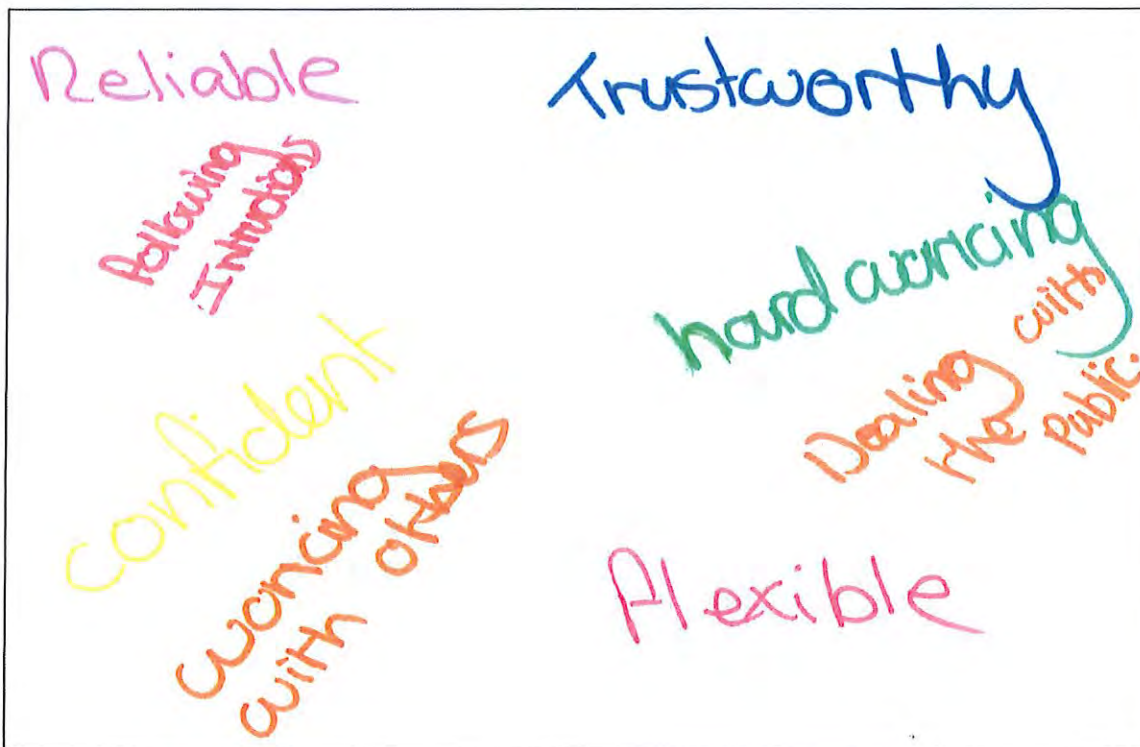 Reliable
Trustworthy
following
Intructions
hard working
Dealing with
the Public.
confident
working
with others
flexible